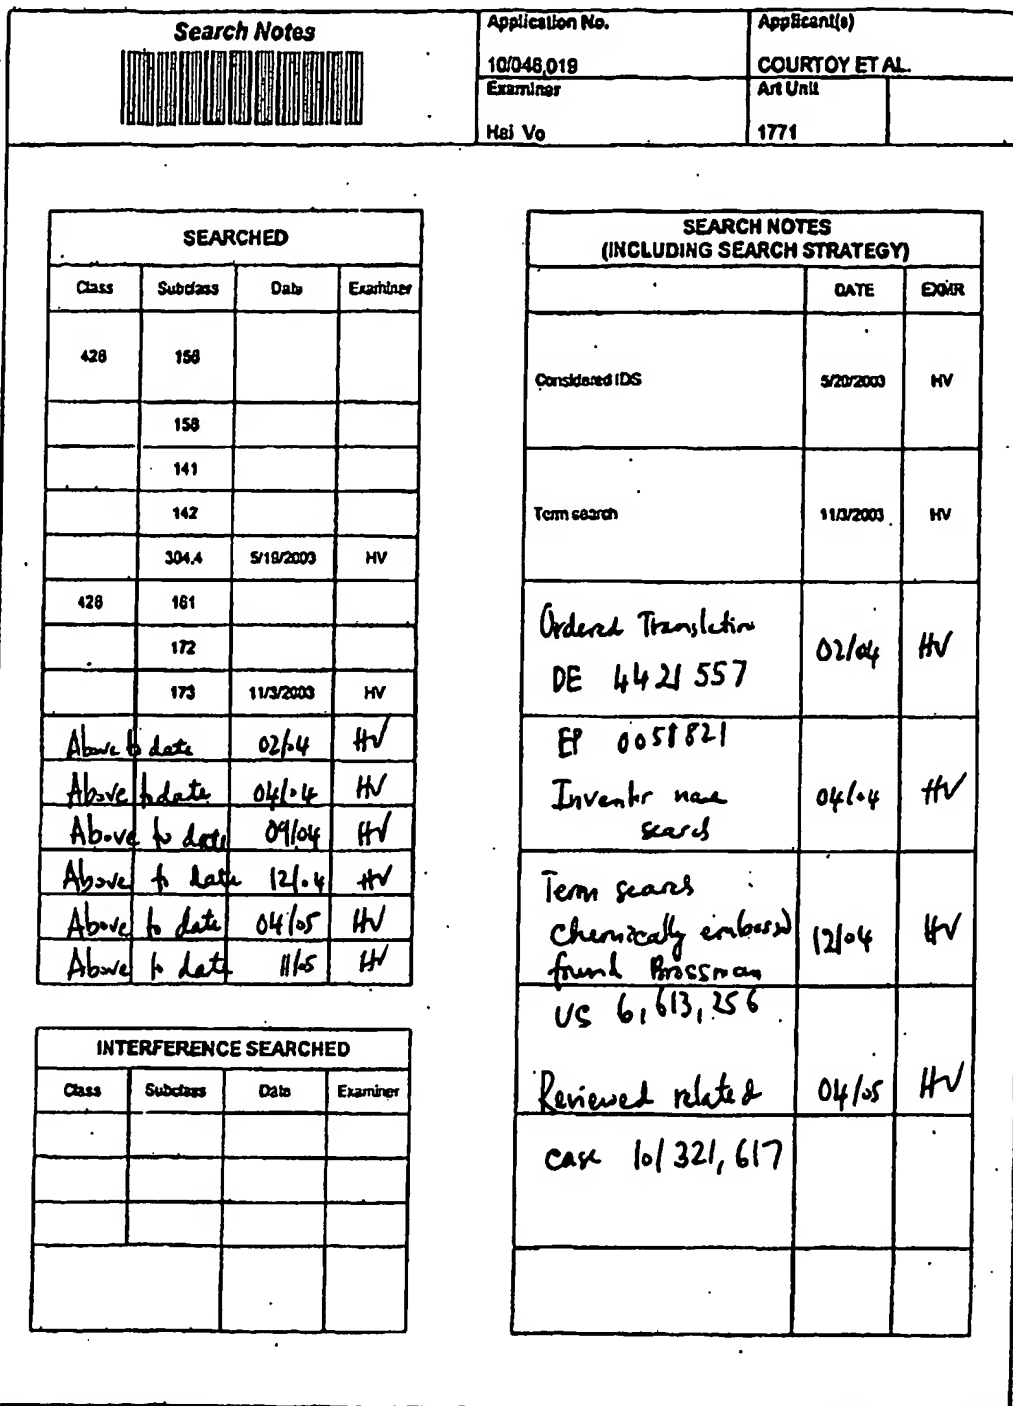 Search Notes
Application No.
Applicant(s)
10/046,019
COURTOY ET AL.
Examiner
Art Unit
Hai Vo
1771
SEARCHED
Class Subclass Date Examiner
428 156
158
141
142
304.4 5/19/2003 HV
428 161
172
173 11/3/2003 HV
Above to date 02/04 HV
Above to date 04/04 HV
Above to date 09/04 HV
Above to date 12/04 HV
Above to date 04/05 HV
Above to date 11/05 HV
INTERFERENCE SEARCHED
Class Subclass Date Examiner
SEARCH NOTES
(INCLUDING SEARCH STRATEGY)
DATE EXMR
Considered IDS 5/20/2003 HV
Term search 11/3/2003 HV
Ordered Translation
DE 4421557 02/04 HV
EP 0051821
Inventor name 04/04 HV
search
Term search
chemically embossed 12/04 HV
found Brossman
US 6,613,256
Reviewed related 04/05 HV
case 10/321,617